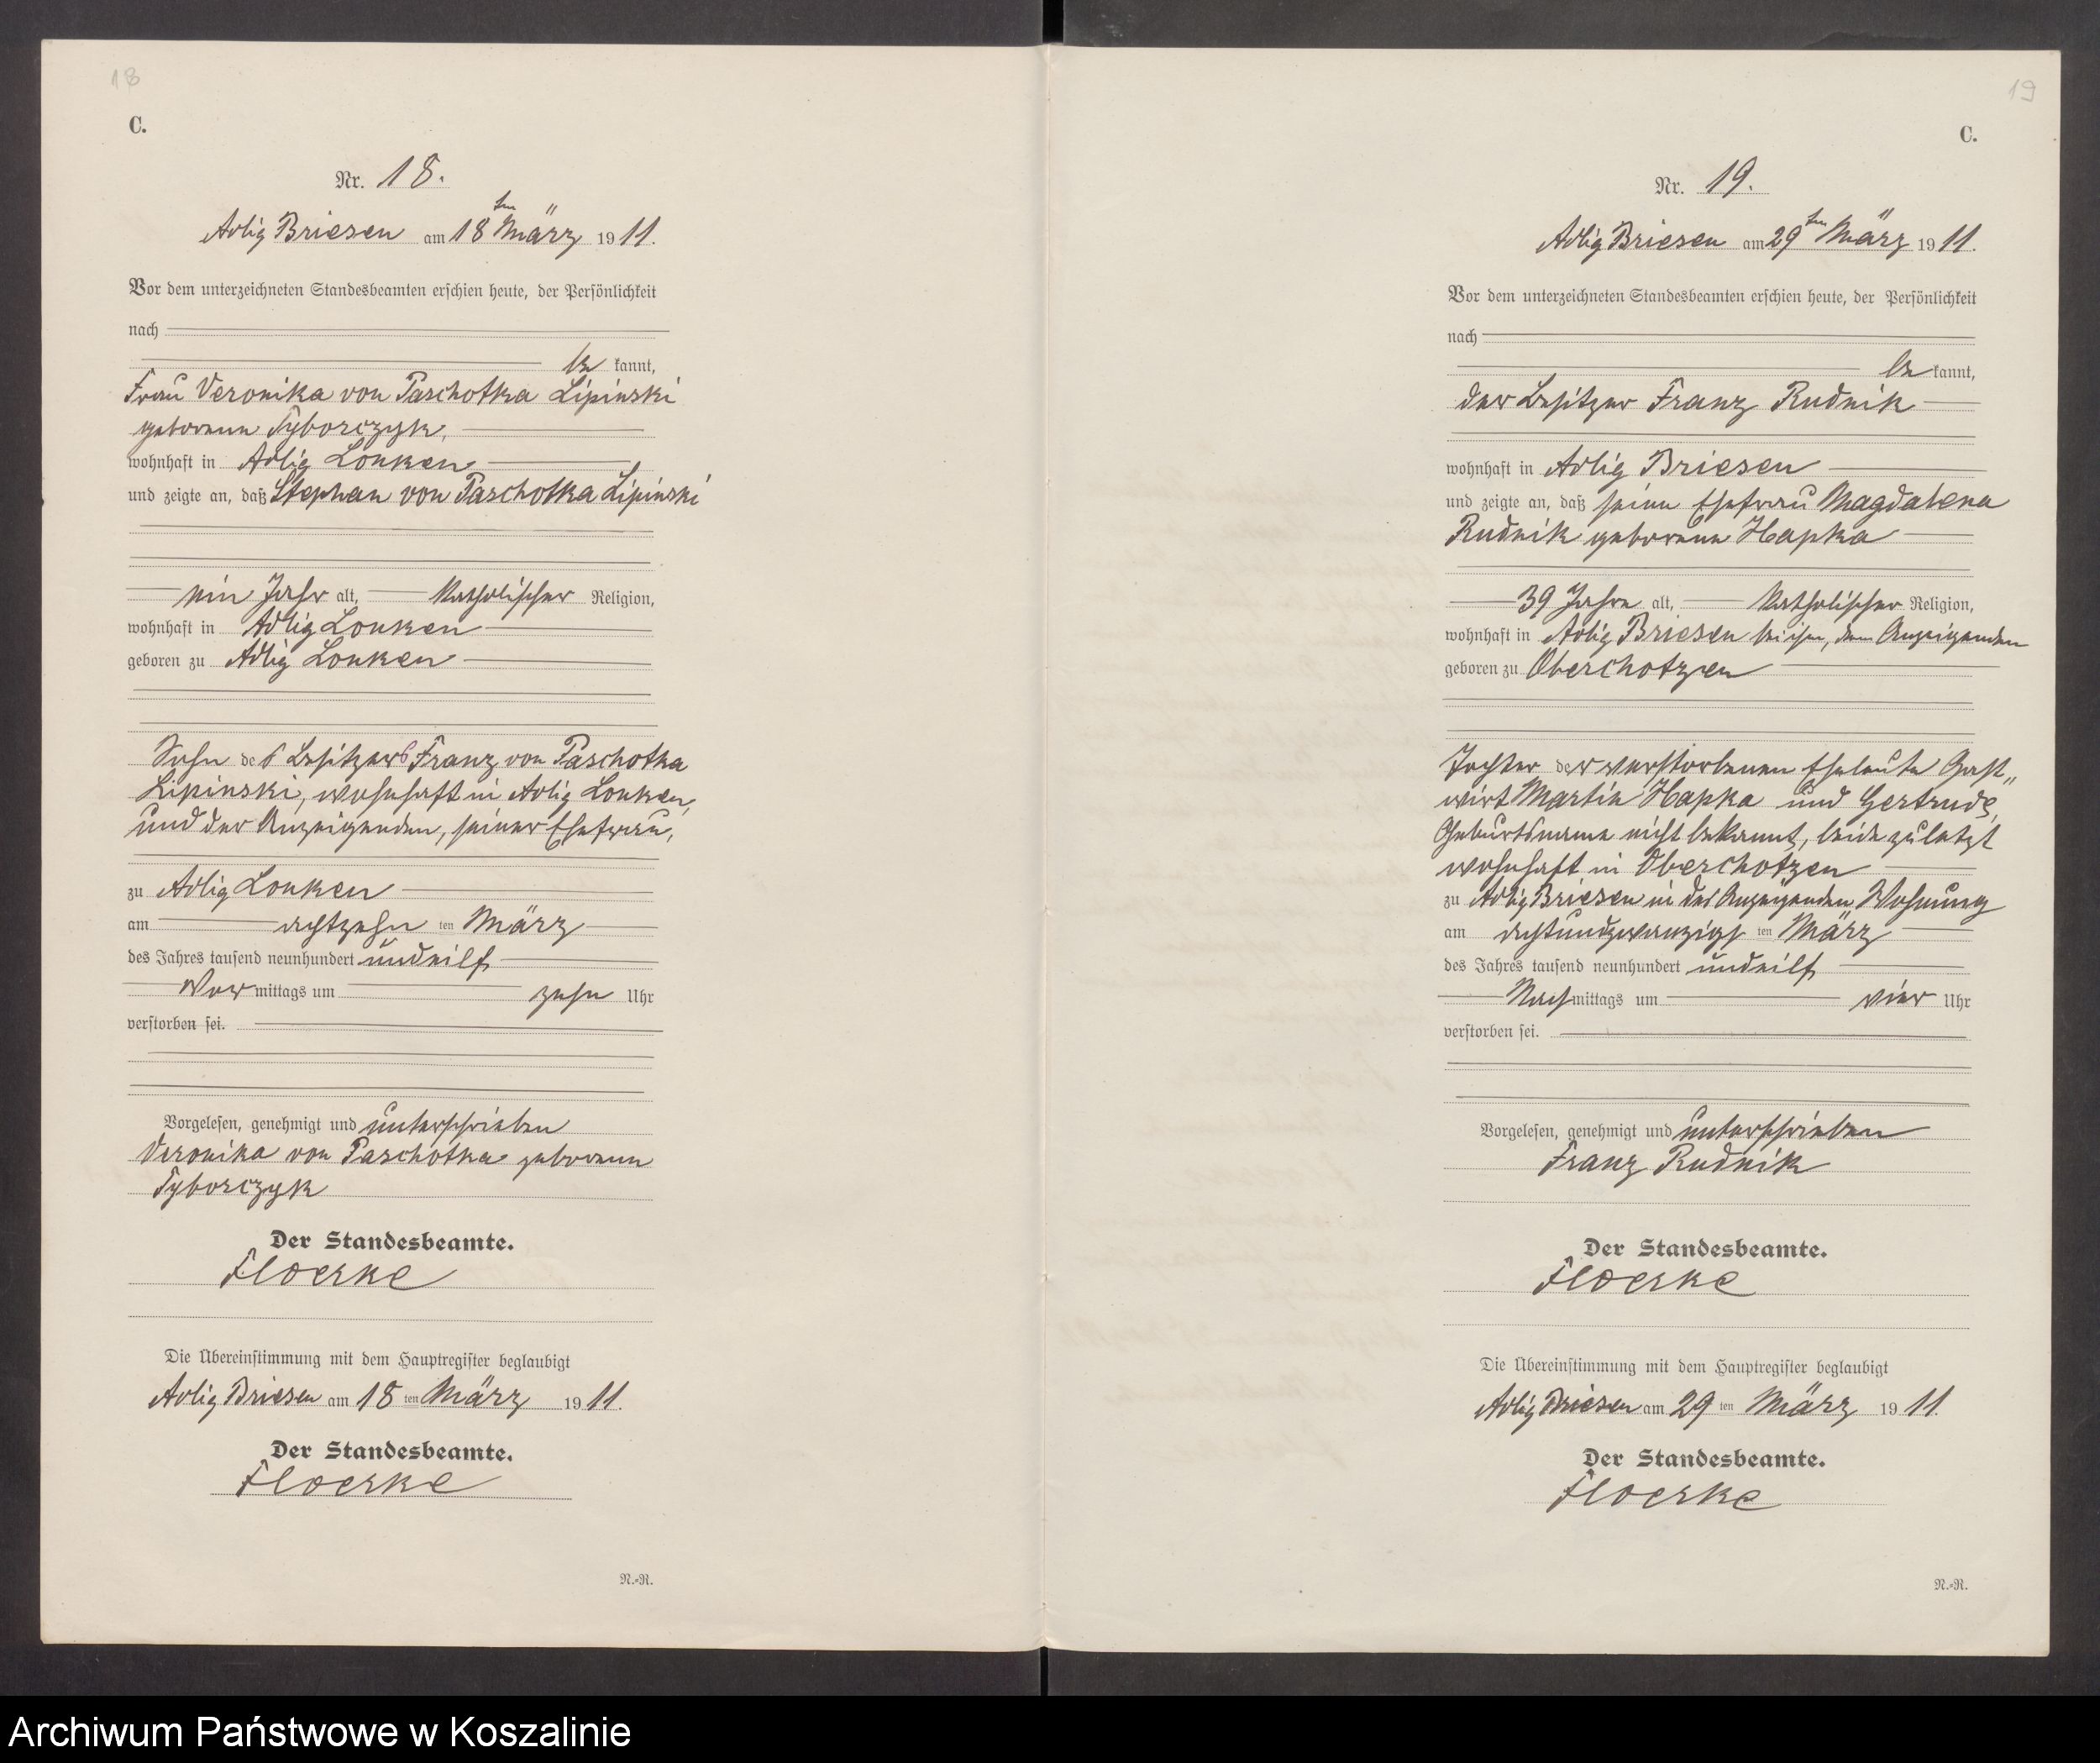 18
C.
Nr. 18.
Adlig Briesen am 18ten März 1911.
Vor dem unterzeichneten Standesbeamten erschien heute, der Persönlichkeit
nach
be kannt,
Frau Veronika von Paschotka Lipinski
geborene Tyborczyk,
wohnhaft in Adlig Lonken
und zeigte an, daß Stephan von Paschotka Lipinski
ein Jahr alt, katholischer Religion,
wohnhaft in Adlig Lonken
geboren zu Adlig Lonken
Sohn des Besitzers Franz von Paschotka
Lipinski, wohnhaft in Adlig Lonken,
und der Anzeigenden, seiner Ehefrau,
zu Adlig Lonken
am achtzehn ten März
des Jahres tausend neunhundert undeilf
Vor mittags um zehn Uhr
verstorben sei.
Vorgelesen, genehmigt und unterschrieben
Veronika von Paschotka geborene
Tyborczyk
Der Standesbeamte.
Floerke
Die Übereinstimmung mit dem Hauptregister beglaubigt
Adlig Briesen am 18 ten März 1911.
Der Standesbeamte.
Floerke
N.-R.
19
C.
Nr. 19.
Adlig Briesen am 29ten März 1911.
Vor dem unterzeichneten Standesbeamten erschien heute, der Persönlichkeit
nach
be kannt,
der Besitzer Franz Rudnik
wohnhaft in Adlig Briesen
und zeigte an, daß seine Ehefrau Magdalena
Rudnik geborene Hapka
39 Jahre alt, katholischer Religion,
wohnhaft in Adlig Briesen bei ihm, dem Anzeigenden
geboren zu Oberchotzen
Tochter der verstorbenen Eheleute Gast„
wirt Martin Hapka und Gertrude,
Geburtsname nicht bekannt, beide zuletzt
wohnhaft in Oberchotzen
zu Adlig Briesen in des Anzeigenden Wohnung
am achtundzwanzigs ten März
des Jahres tausend neunhundert undeilf
Nach mittags um vier Uhr
verstorben sei.
Vorgelesen, genehmigt und unterschrieben
Franz Rudnik
Der Standesbeamte.
Floerke
Die Übereinstimmung mit dem Hauptregister beglaubigt
Adlig Briesen am 29 ten März 1911.
Der Standesbeamte.
Floerke
N.-R.
Archiwum Państwowe w Koszalinie